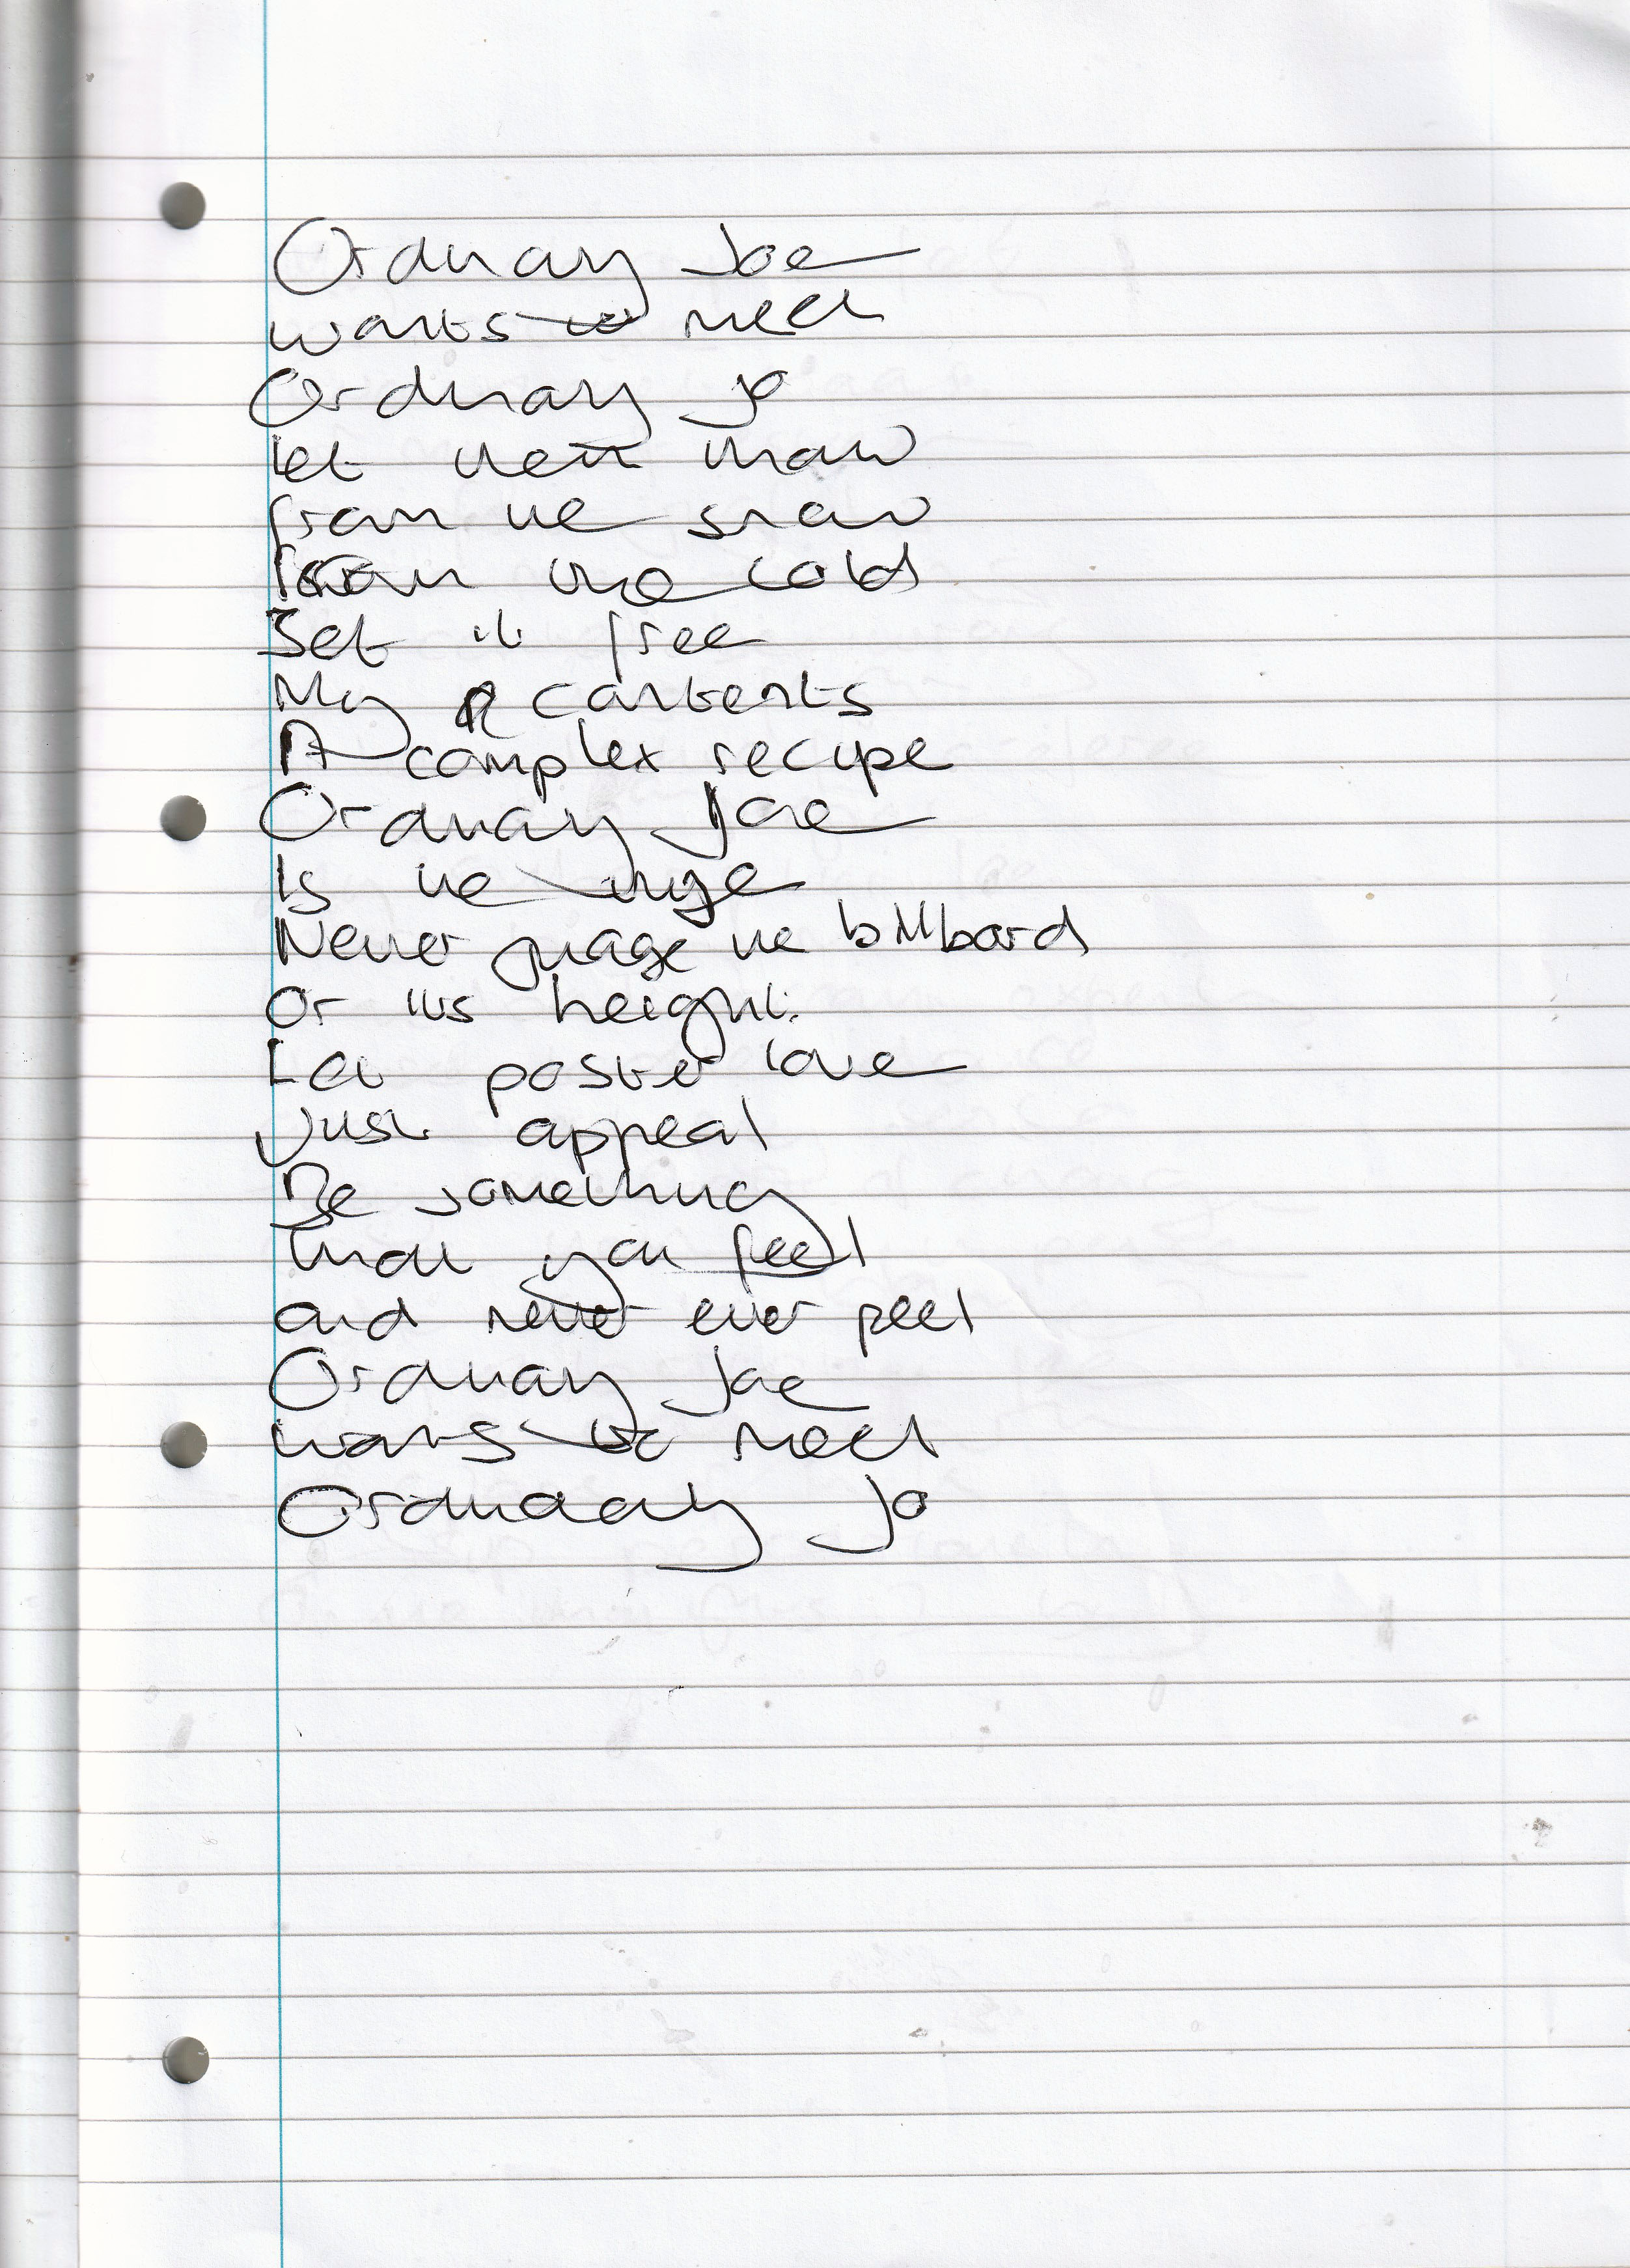 Ordinary Joe
wants to meet
Ordinary jo
let them thaw
from the snow
from the cold
Set it free
My contents
A complex recipe
Ordinary Joe
Is the urge
Never judge the billboard
Or its height.
Let poster love
Just appeal
Be something
that you feel
and never ever peel
Ordinary Joe
wants to meet
Ordinary Jo